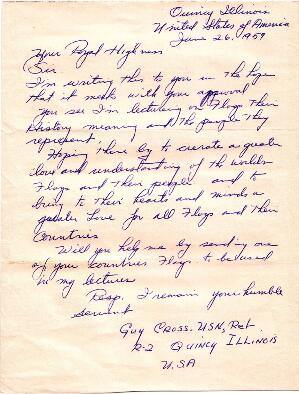 Quincy Illinois
United States of America
June 26, 1959
Your Royal Highness
Sir
I'm writing this to you in the hope
that it meets with your approval
You see I'm lecturing on Flags Their
History meaning and the people They
represent.
Hoping There by to create a greater
love and understanding of the worlds
Flags and Their people and to
bring to Their hearts and minds a
greater Love for all Flags and Their
Countries
Will you help me by sending one
of your countries Flags to be used
in my lectures
Resp. I remain your humble
servant
Guy Cross. USN, Ret
R-2 Quincy Illinois
U.S.A